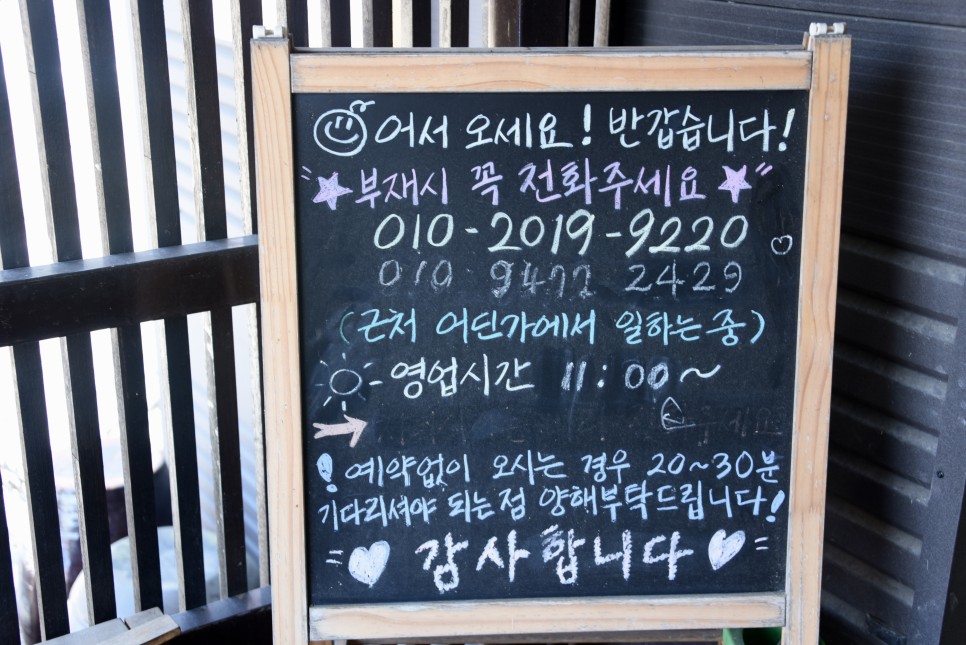 어서 오세요! 반갑습니다!
"★부재시 꼭 전화주세요★"
010-2019-9220
010 9477 2429
(근처 어딘가에서 일하는중)
영업시간 11:00~
→
! 예약없이 오시는 경우 20~30분
기다리셔야 되는점 양해부탁드립니다!
감사합니다